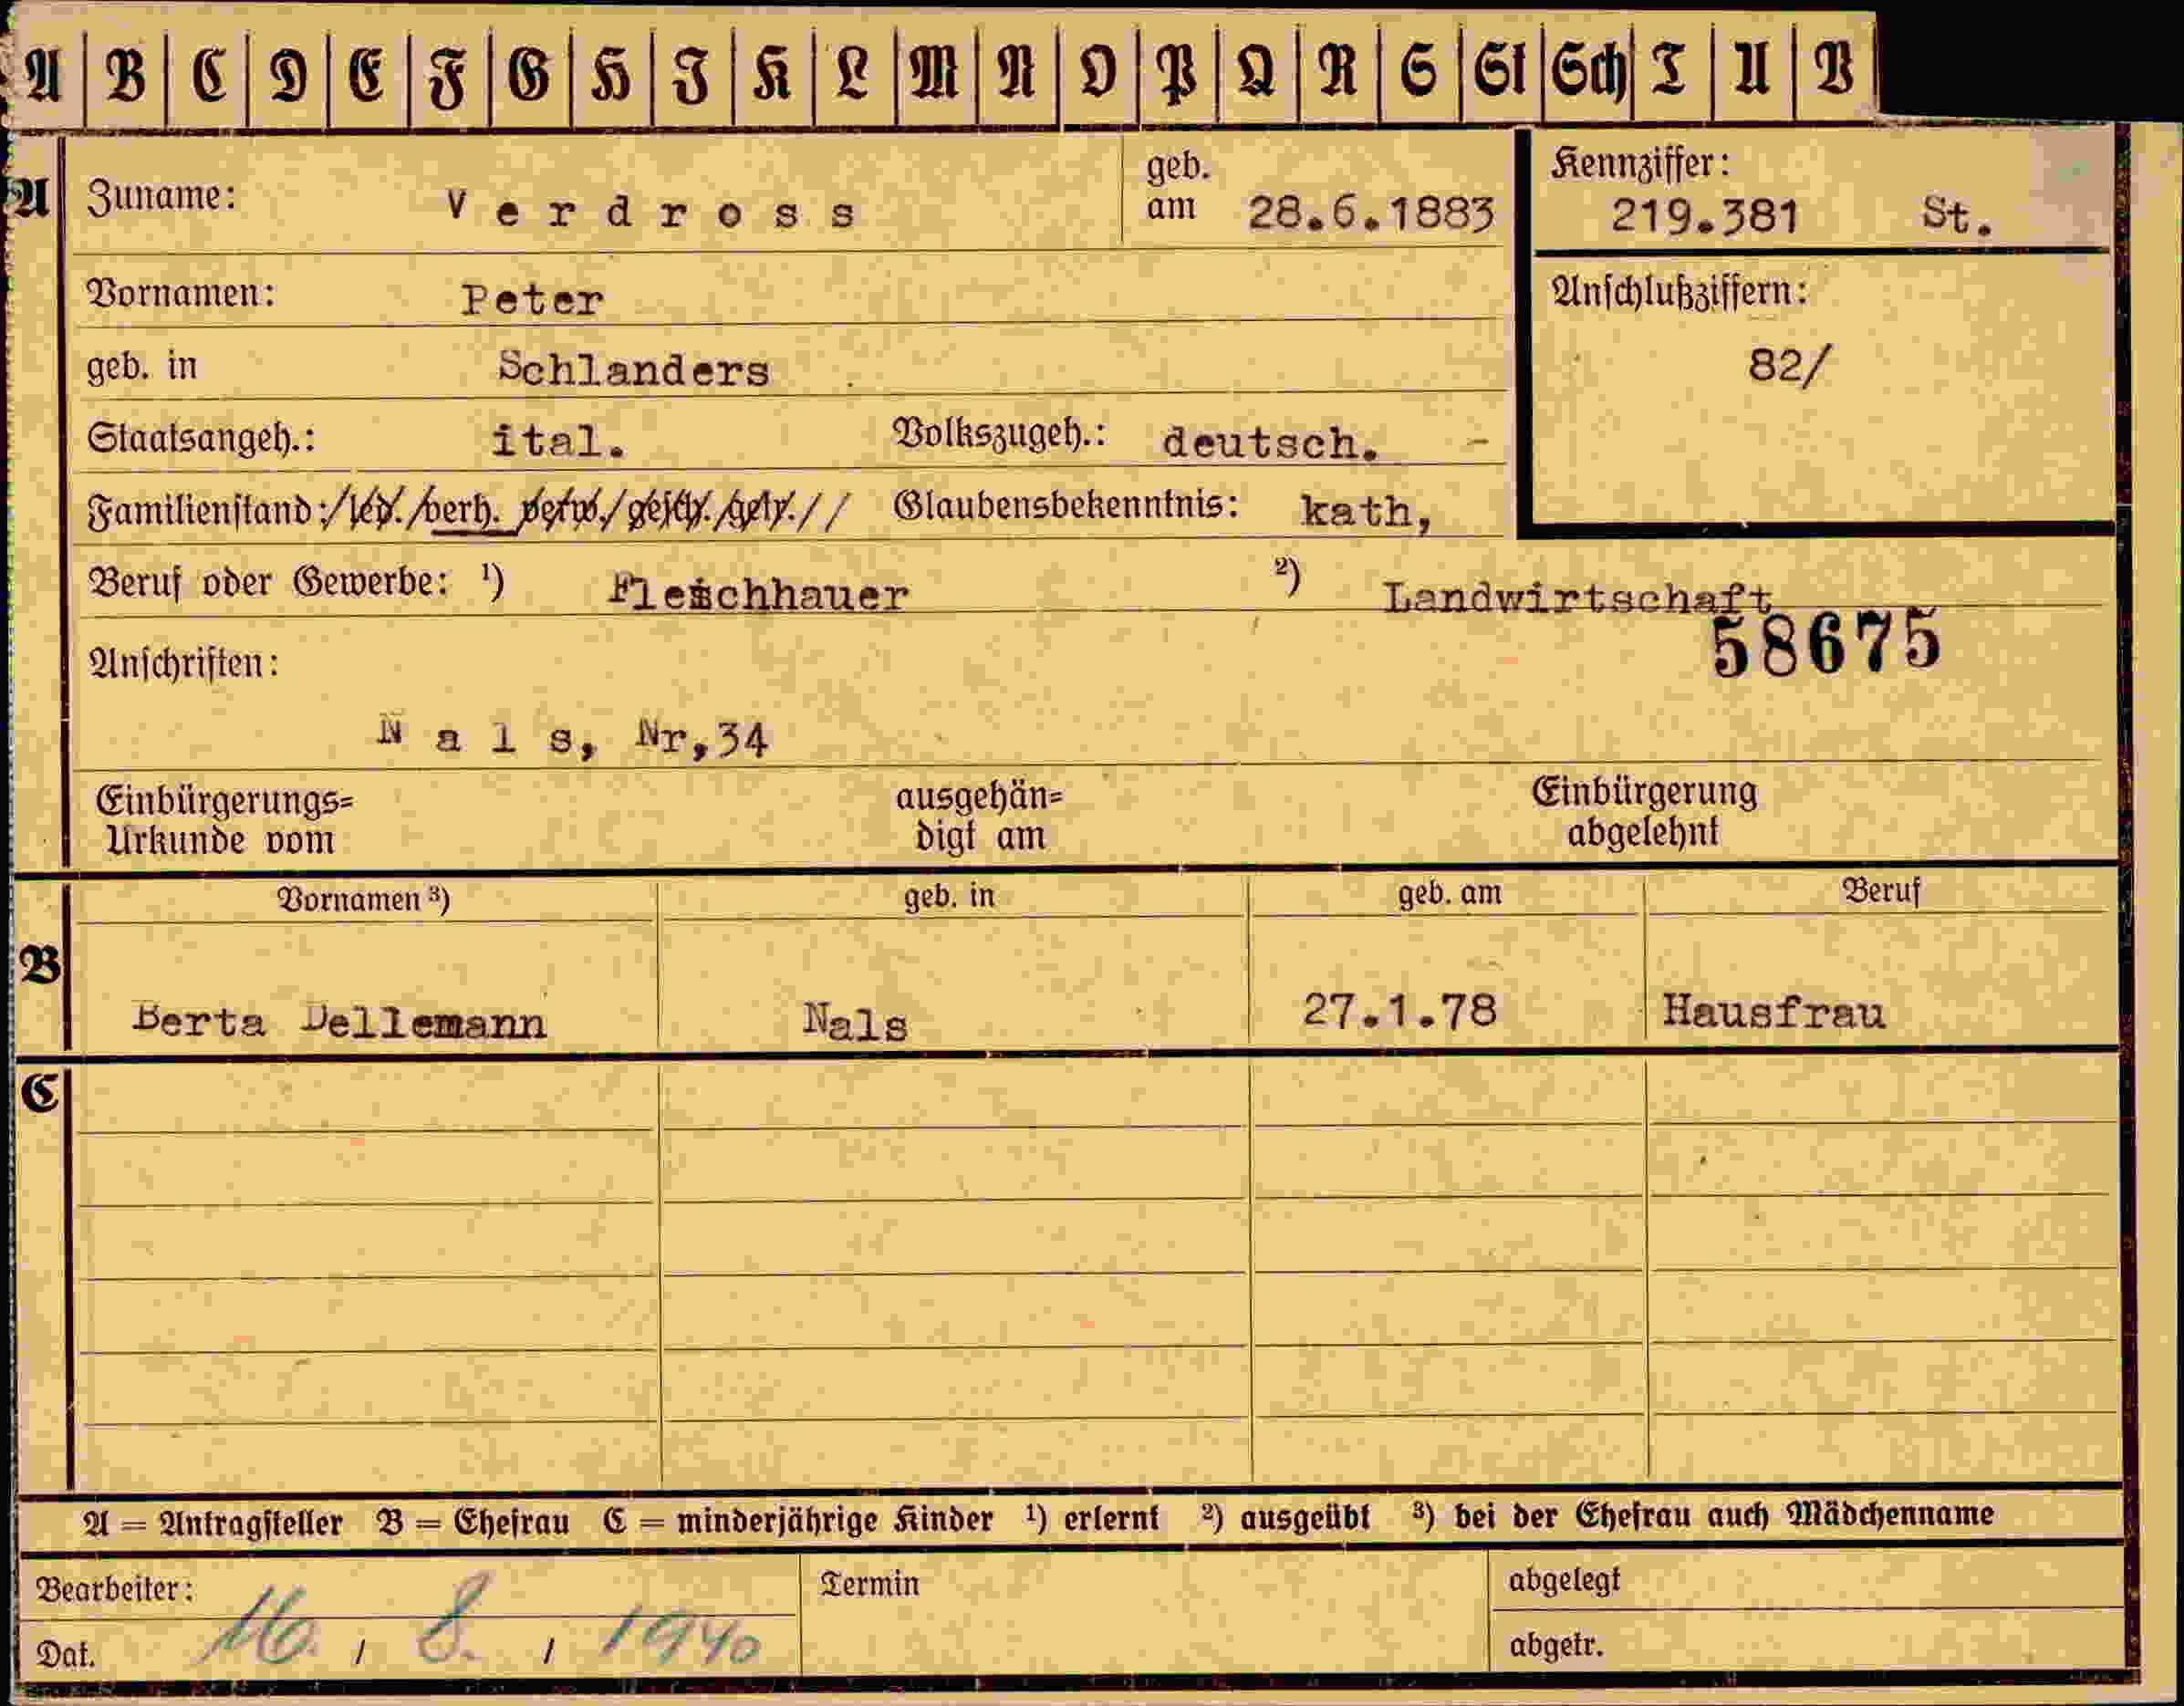 A B C D E F G H I K L M N O P Q R S St Sch T U V
A Zuname: Verdross geb. am 28.6.1883 Kennziffer: 219.381 St.
Vornamen: Peter Anschlußziffern:
geb. in Schlanders 82/
Staatsangeh.: ital. Volkszugeh.: deutsch. -
Familienstand: /led./verh. verw./gesch./getr.// Glaubensbekenntnis: kath,
Beruf oder Gewerbe: ¹) Fleischhauer ²) Landwirtschaft
58675
Anschriften:
Nals, Nr,34
Einbürgerungs= ausgehän= Einbürgerung
Urkunde vom digt am abgelehnt
Vornamen ³) geb. in geb. am Beruf
B
Berta Dellemann Nals 27.1.78 Hausfrau
C
A = Antragsteller B = Ehefrau C = minderjährige Kinder ¹) erlernt ²) ausgeübt ³) bei der Ehefrau auch Mädchenname
Bearbeiter: Termin abgelegt
Dat. 16. / 8. / 1940 abgetr.